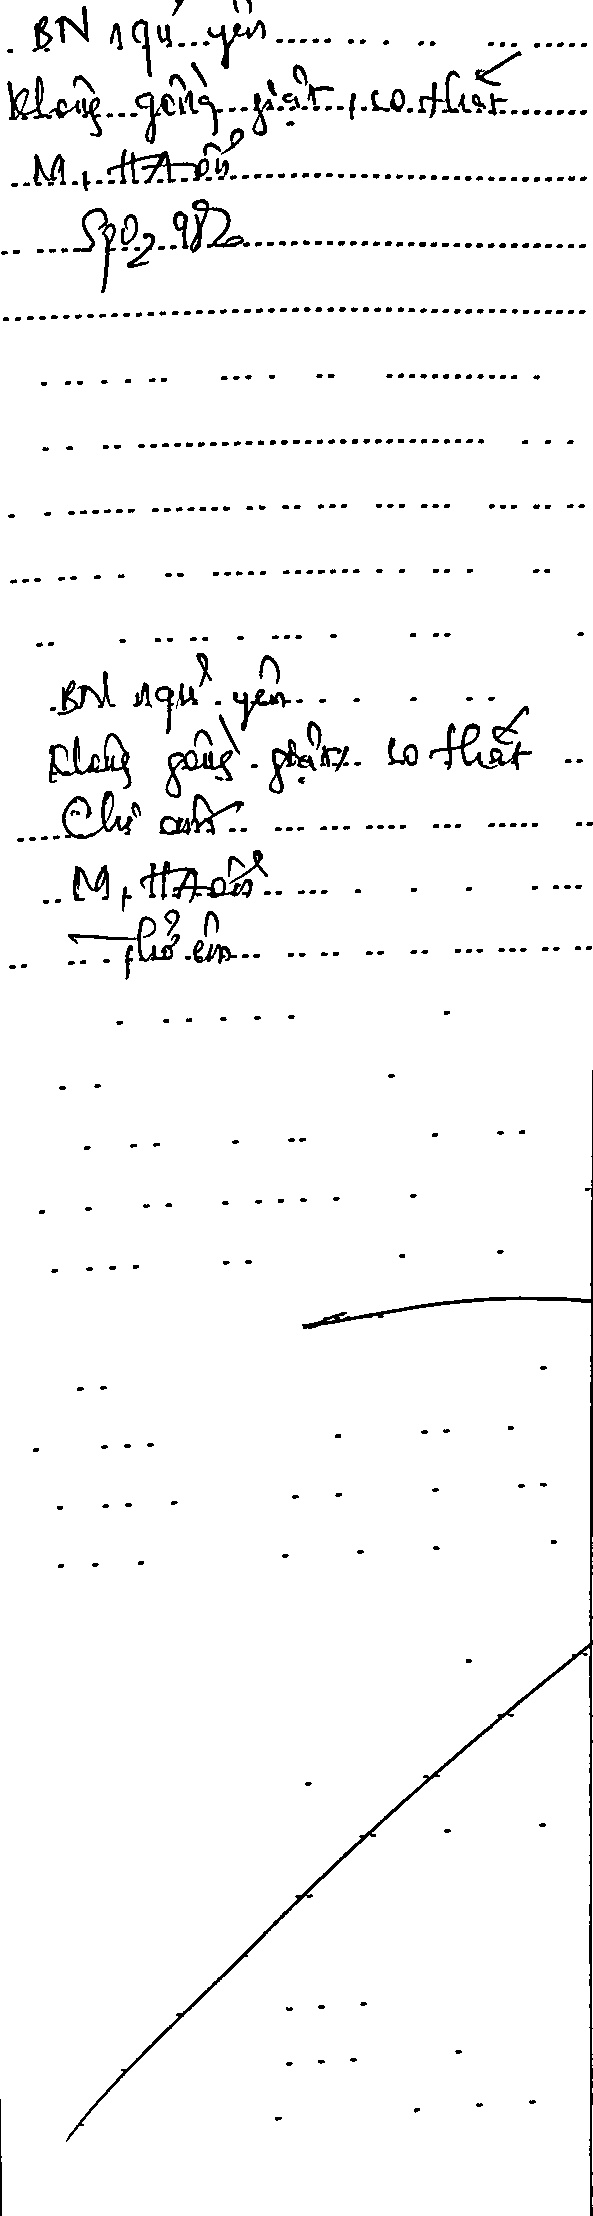 BN ngủ yên
Không gồng giật, co thắt
M, HA ổn
SpO2 98%
BN ngủ yên
Không gồng giật, co thắt
M, HA ổn
Thở êm